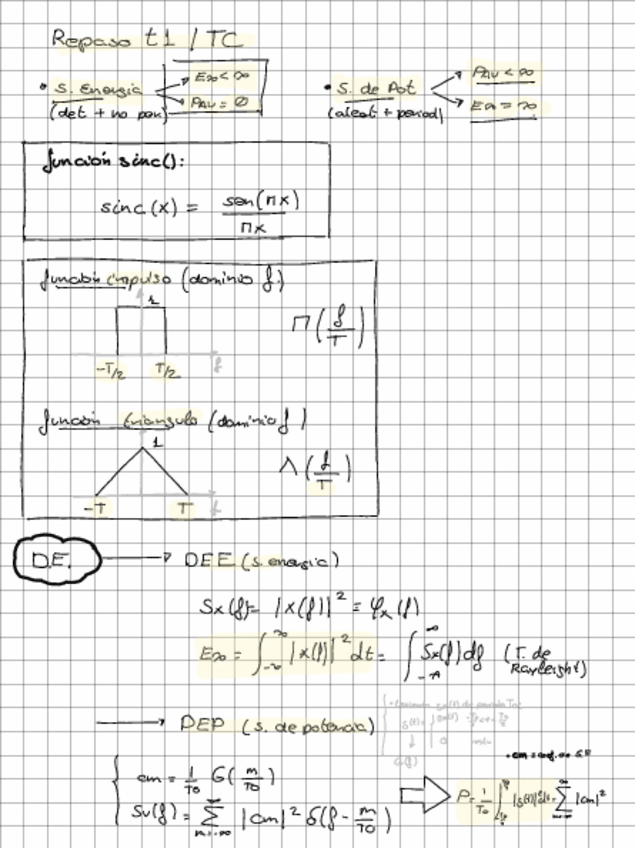 Repaso t1 / TC
• S. Energia → E∞ < ∞
→ PAV = 0
(det + no per)
• S. de Pot → PAV < ∞
→ E∞ = ∞
(aleat + period)
función sinc():
sinc(x) = sen(πx) / πx
función impulso (dominio f)
1
-T/2 T/2 f
Π(f/T)
función triángulo (dominio f)
1
-T T f
Λ(f/T)
D.E. → DEE (s. energia)
Sx(f) = |x(f)|² = φx(f)
E∞ = ∫_{-∞}^{∞} |x(f)|² dt = ∫_{-∞}^{∞} Sx(f)df (T. de Rayleight)
→ DEP (s. de potencia)
cm = 1/T0 G(m/T0)
Sv(f) = Σ_{m=-∞}^{∞} |cm|² δ(f - m/T0)
P = 1/T0 ∫ |s(t)|² dt = Σ |cm|²